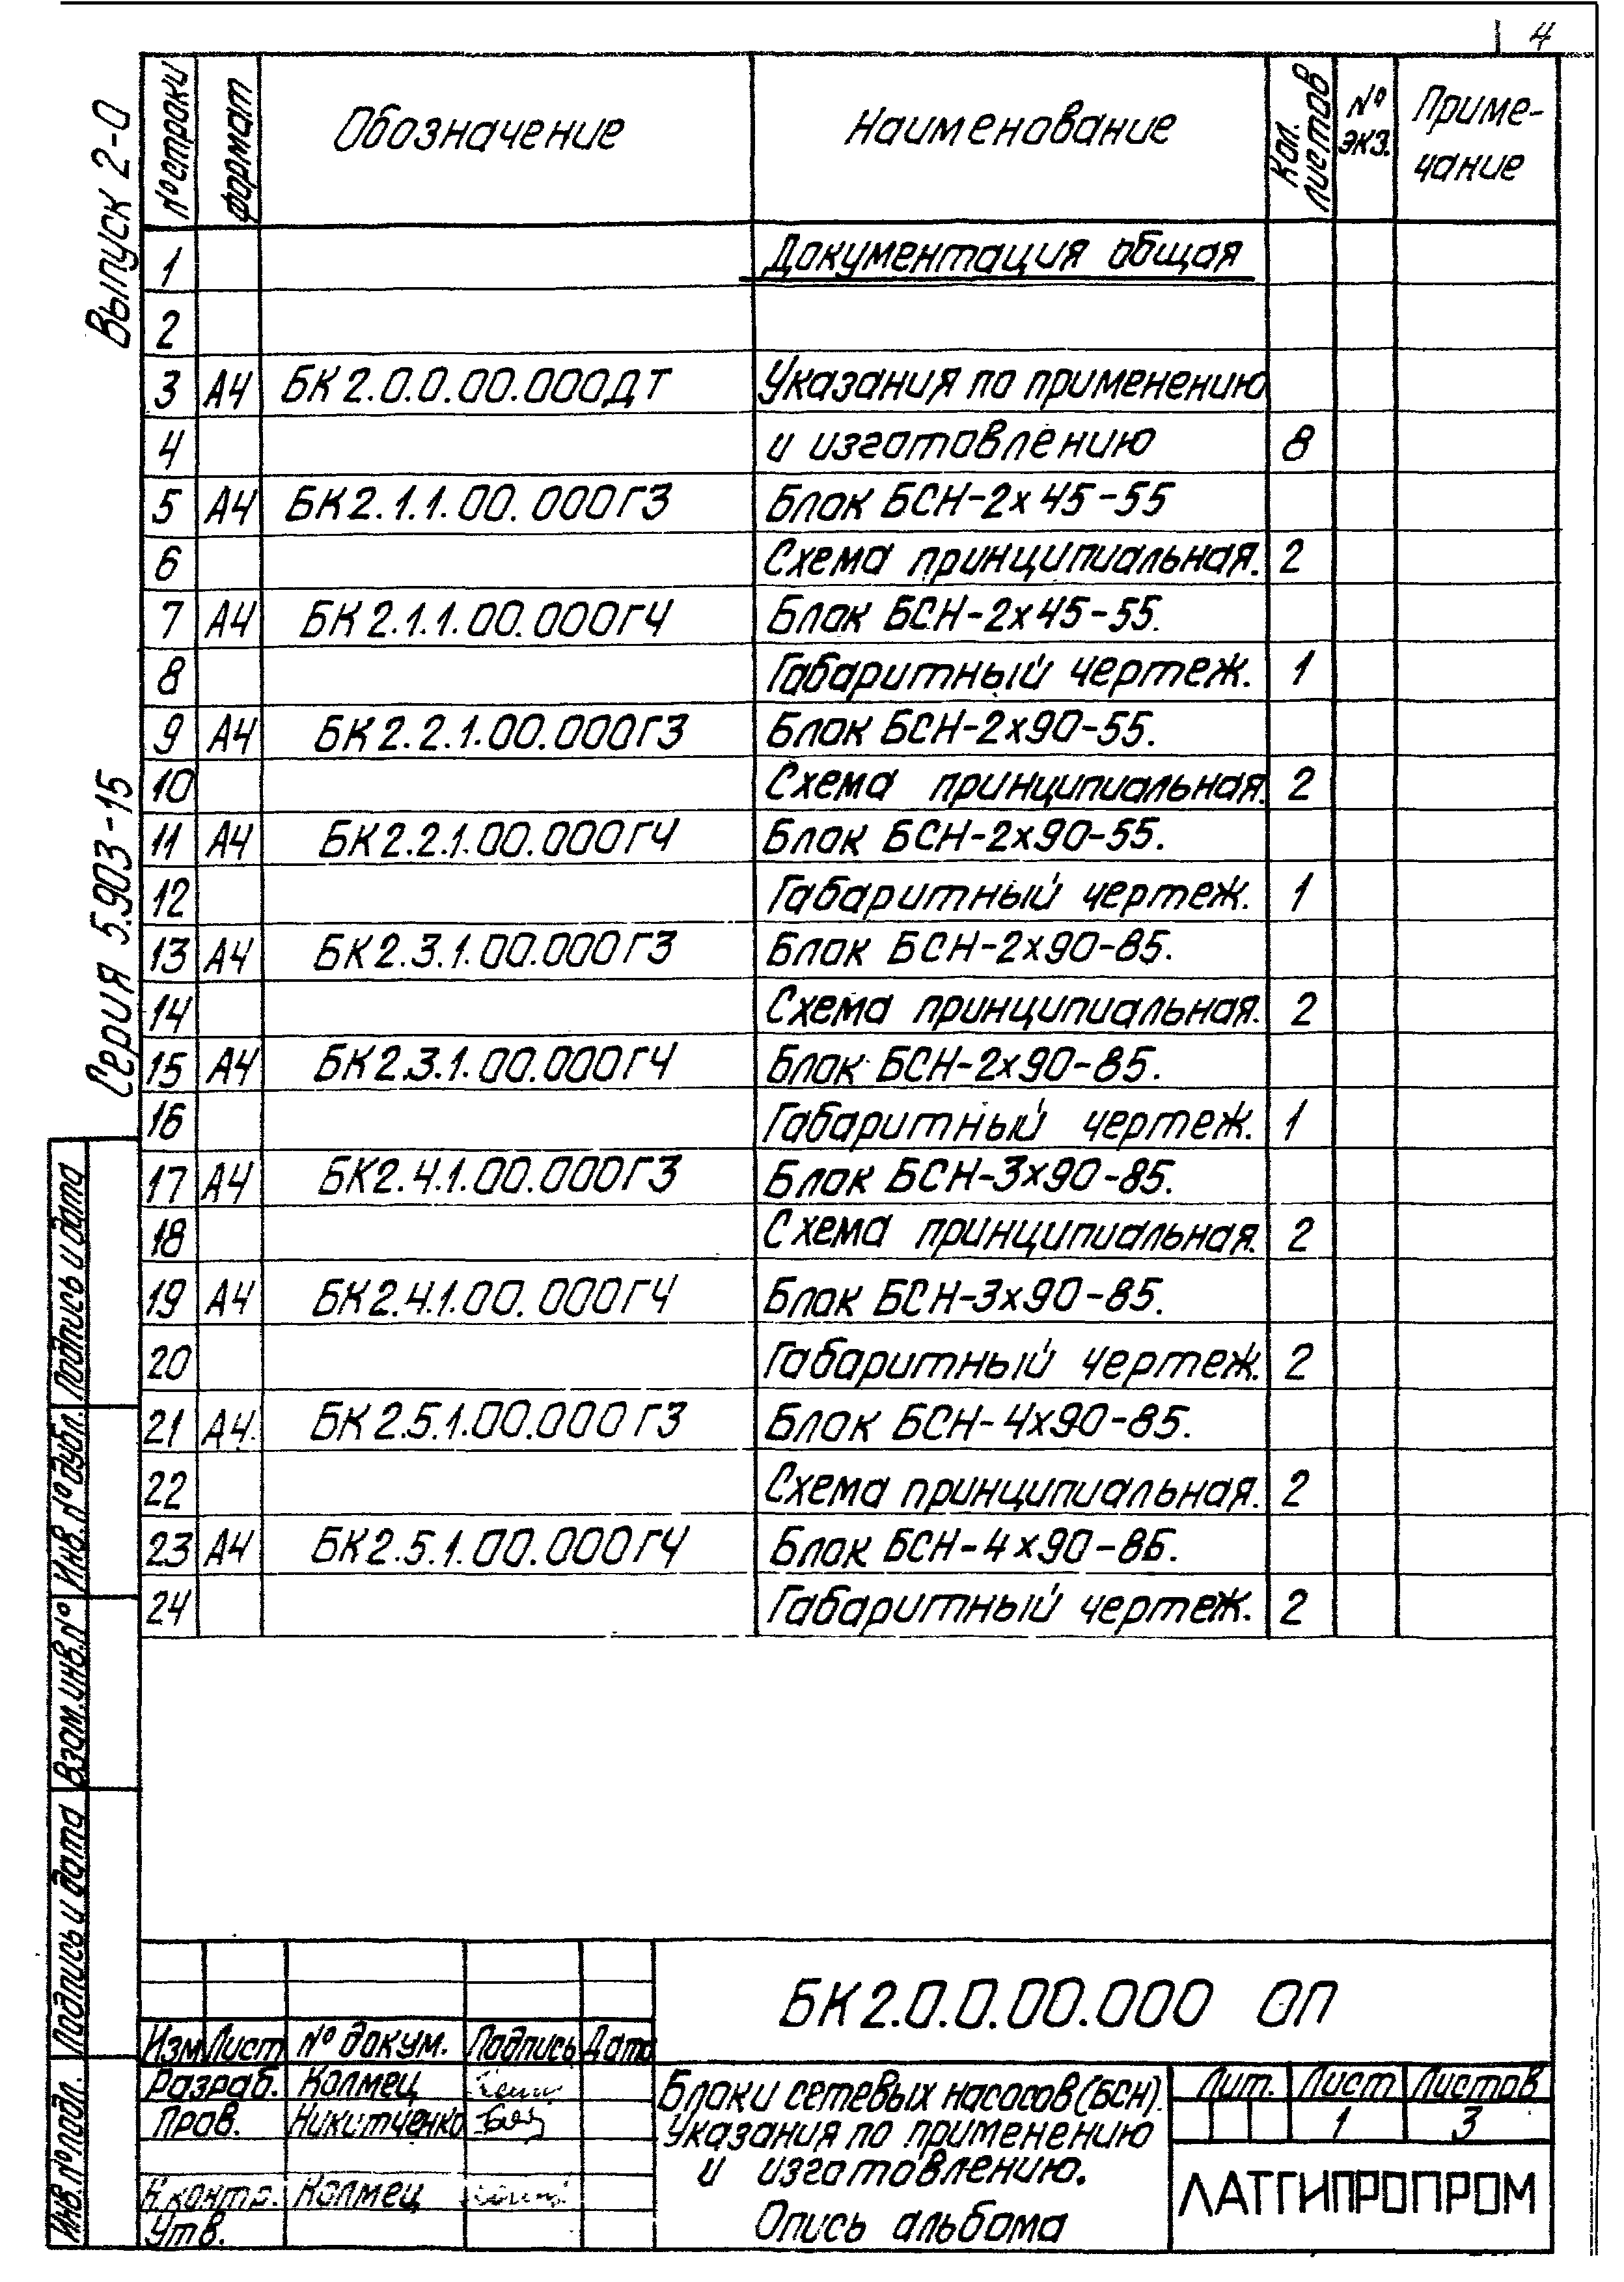 4
Серия 5.903-15 Выпуск 2-0
№ строки Формат Обозначение Наименование Кол. листов № экз. Приме-чание
1 Документация общая
2
3 А4 БК2.0.0.00.000ДТ Указания по применению
4 и изготовлению 8
5 А4 БК2.1.1.00.000ГЗ Блок БСН-2х45-55
6 Схема принципиальная. 2
7 А4 БК2.1.1.00.000ГЧ Блок БСН-2х45-55.
8 Габаритный чертеж. 1
9 А4 БК2.2.1.00.000ГЗ Блок БСН-2х90-55.
10 Схема принципиальная. 2
11 А4 БК2.2.1.00.000ГЧ Блок БСН-2х90-55.
12 Габаритный чертеж. 1
13 А4 БК2.3.1.00.000ГЗ Блок БСН-2х90-85.
14 Схема принципиальная. 2
15 А4 БК2.3.1.00.000ГЧ Блок БСН-2х90-85.
16 Габаритный чертеж. 1
17 А4 БК2.4.1.00.000ГЗ Блок БСН-3х90-85.
18 Схема принципиальная. 2
19 А4 БК2.4.1.00.000ГЧ Блок БСН-3х90-85.
20 Габаритный чертеж. 2
21 А4. БК2.5.1.00.000ГЗ Блок БСН-4х90-85.
22 Схема принципиальная. 2
23 А4 БК2.5.1.00.000ГЧ Блок БСН-4х90-85.
24 Габаритный чертеж. 2
Подпись и дата
Инв.№ дубл.
Взам.инв.№
Подпись и дата
Инв.№ подл.
БК2.0.0.00.000 ОП
Изм Лист № докум. Подпись Дата
Разраб. Колмец
Пров. Никитченко
Н.контр. Колмец
Утв.
Блоки сетевых насосов(БСН).
Указания по применению
и изготовлению.
Опись альбома
Лит. Лист Листов
1 3
ЛАТГИПРОПРОМ